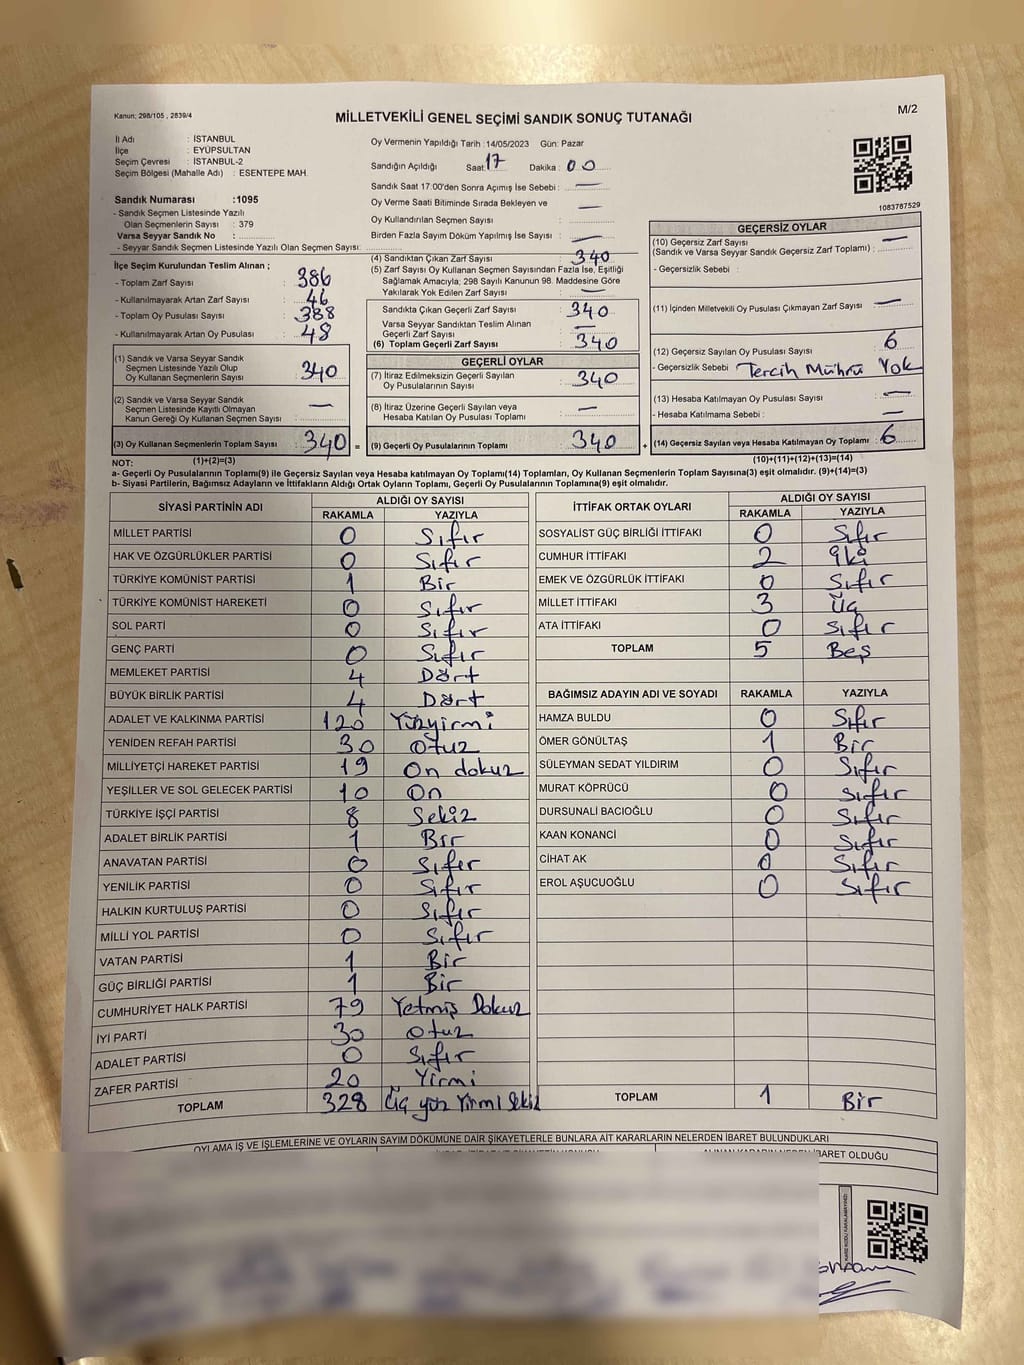 Kanun; 298/105 , 2839/4
MİLLETVEKİLİ GENEL SEÇİMİ SANDIK SONUÇ TUTANAĞI
M/2
İl Adı : İSTANBUL
İlçe : EYÜPSULTAN
Seçim Çevresi : İSTANBUL-2
Seçim Bölgesi (Mahalle Adı) : ESENTEPE MAH.
Oy Vermenin Yapıldığı Tarih :14/05/2023 Gün: Pazar
Sandığın Açıldığı Saat: 17 Dakika : 00
Sandık Saat 17:00'den Sonra Açımış İse Sebebi : —
Oy Verme Saati Bitiminde Sırada Bekleyen ve —
Oy Kullandırılan Seçmen Sayısı :
Birden Fazla Sayım Döküm Yapılmış İse Sayısı : —
1083787529
Sandık Numarası :1095
- Sandık Seçmen Listesinde Yazılı
Olan Seçmenlerin Sayısı : 379
Varsa Seyyar Sandık No :
- Seyyar Sandık Seçmen Listesinde Yazılı Olan Seçmen Sayısı:
İlçe Seçim Kurulundan Teslim Alınan ;
- Toplam Zarf Sayısı : 386
- Kullanılmayarak Artan Zarf Sayısı : 46
- Toplam Oy Pusulası Sayısı : 388
- Kullanılmayarak Artan Oy Pusulası : 48
(1) Sandık ve Varsa Seyyar Sandık
Seçmen Listesinde Yazılı Olup
Oy Kullanan Seçmenlerin Sayısı : 340
(2) Sandık ve Varsa Seyyar Sandık
Seçmen Listesinde Kayıtlı Olmayan
Kanun Gereği Oy Kullanan Seçmen Sayısı : —
(3) Oy Kullanan Seçmenlerin Toplam Sayısı : 340
(4) Sandıktan Çıkan Zarf Sayısı : 340
(5) Zarf Sayısı Oy Kullanan Seçmen Sayısından Fazla İse, Eşitliği
Sağlamak Amacıyla; 298 Sayılı Kanunun 98. Maddesine Göre
Yakılarak Yok Edilen Zarf Sayısı : —
Sandıkta Çıkan Geçerli Zarf Sayısı : 340
Varsa Seyyar Sandıktan Teslim Alınan
Geçerli Zarf Sayısı : —
(6) Toplam Geçerli Zarf Sayısı : 340
GEÇERLİ OYLAR
(7) İtiraz Edilmeksizin Geçerli Sayılan
Oy Pusulalarının Sayısı : 340
(8) İtiraz Üzerine Geçerli Sayılan veya
Hesaba Katılan Oy Pusulası Toplamı : —
= (9) Geçerli Oy Pusulalarının Toplamı 340
GEÇERSİZ OYLAR
(10) Geçersiz Zarf Sayısı —
(Sandık ve Varsa Seyyar Sandık Geçersiz Zarf Toplamı) :
- Geçersizlik Sebebi :
(11) İçinden Milletvekili Oy Pusulası Çıkmayan Zarf Sayısı : —
(12) Geçersiz Sayılan Oy Pusulası Sayısı : 6
- Geçersizlik Sebebi : Tercih Mührü Yok
(13) Hesaba Katılmayan Oy Pusulası Sayısı : —
- Hesaba Katılmama Sebebi : —
+ (14) Geçersiz Sayılan veya Hesaba Katılmayan Oy Toplamı : 6
NOT: (1)+(2)=(3) (10)+(11)+(12)+(13)=(14)
a- Geçerli Oy Pusulalarının Toplamı(9) ile Geçersiz Sayılan veya Hesaba katılmayan Oy Toplamı(14) Toplamları, Oy Kullanan Seçmenlerin Toplam Sayısına(3) eşit olmalıdır. (9)+(14)=(3)
b- Siyasi Partilerin, Bağımsız Adayların ve İttifakların Aldığı Ortak Oyların Toplamı, Geçerli Oy Pusulalarının Toplamına(9) eşit olmalıdır.
SİYASİ PARTİNİN ADI ALDIĞI OY SAYISI
RAKAMLA YAZIYLA
MİLLET PARTİSİ 0 Sıfır
HAK VE ÖZGÜRLÜKLER PARTİSİ 0 Sıfır
TÜRKİYE KOMÜNİST PARTİSİ 1 Bir
TÜRKİYE KOMÜNİST HAREKETİ 0 Sıfır
SOL PARTİ 0 Sıfır
GENÇ PARTİ 0 Sıfır
MEMLEKET PARTİSİ 4 Dört
BÜYÜK BİRLİK PARTİSİ 4 Dört
ADALET VE KALKINMA PARTİSİ 120 Yüzyirmi
YENİDEN REFAH PARTİSİ 30 Otuz
MİLLİYETÇİ HAREKET PARTİSİ 19 On dokuz
YEŞİLLER VE SOL GELECEK PARTİSİ 10 On
TÜRKİYE İŞÇİ PARTİSİ 8 Sekiz
ADALET BİRLİK PARTİSİ 1 Bir
ANAVATAN PARTİSİ 0 Sıfır
YENİLİK PARTİSİ 0 Sıfır
HALKIN KURTULUŞ PARTİSİ 0 Sıfır
MİLLİ YOL PARTİSİ 0 Sıfır
VATAN PARTİSİ 1 Bir
GÜÇ BİRLİĞİ PARTİSİ 1 Bir
CUMHURİYET HALK PARTİSİ 79 Yetmiş Dokuz
İYİ PARTİ 30 Otuz
ADALET PARTİSİ 0 Sıfır
ZAFER PARTİSİ 20 Yirmi
TOPLAM 328 Üç yüz Yirmi Sekiz
İTTİFAK ORTAK OYLARI ALDIĞI OY SAYISI
RAKAMLA YAZIYLA
SOSYALİST GÜÇ BİRLİĞİ İTTİFAKI 0 Sıfır
CUMHUR İTTİFAKI 2 İki
EMEK VE ÖZGÜRLÜK İTTİFAKI 0 Sıfır
MİLLET İTTİFAKI 3 Üç
ATA İTTİFAKI 0 Sıfır
TOPLAM 5 Beş
BAĞIMSIZ ADAYIN ADI VE SOYADI RAKAMLA YAZIYLA
HAMZA BULDU 0 Sıfır
ÖMER GÖNÜLTAŞ 1 Bir
SÜLEYMAN SEDAT YILDIRIM 0 Sıfır
MURAT KÖPRÜCÜ 0 Sıfır
DURSUNALİ BACIOĞLU 0 Sıfır
KAAN KONANCİ 0 Sıfır
CİHAT AK 0 Sıfır
EROL AŞUCUOĞLU 0 Sıfır
TOPLAM 1 Bir
OYLAMA İŞ VE İŞLEMLERİNE VE OYLARIN SAYIM DÖKÜMÜNE DAİR ŞİKAYETLERLE BUNLARA AİT KARARLARIN NELERDEN İBARET BULUNDUKLARI
ALINAN KARARIN NEDEN İBARET OLDUĞU